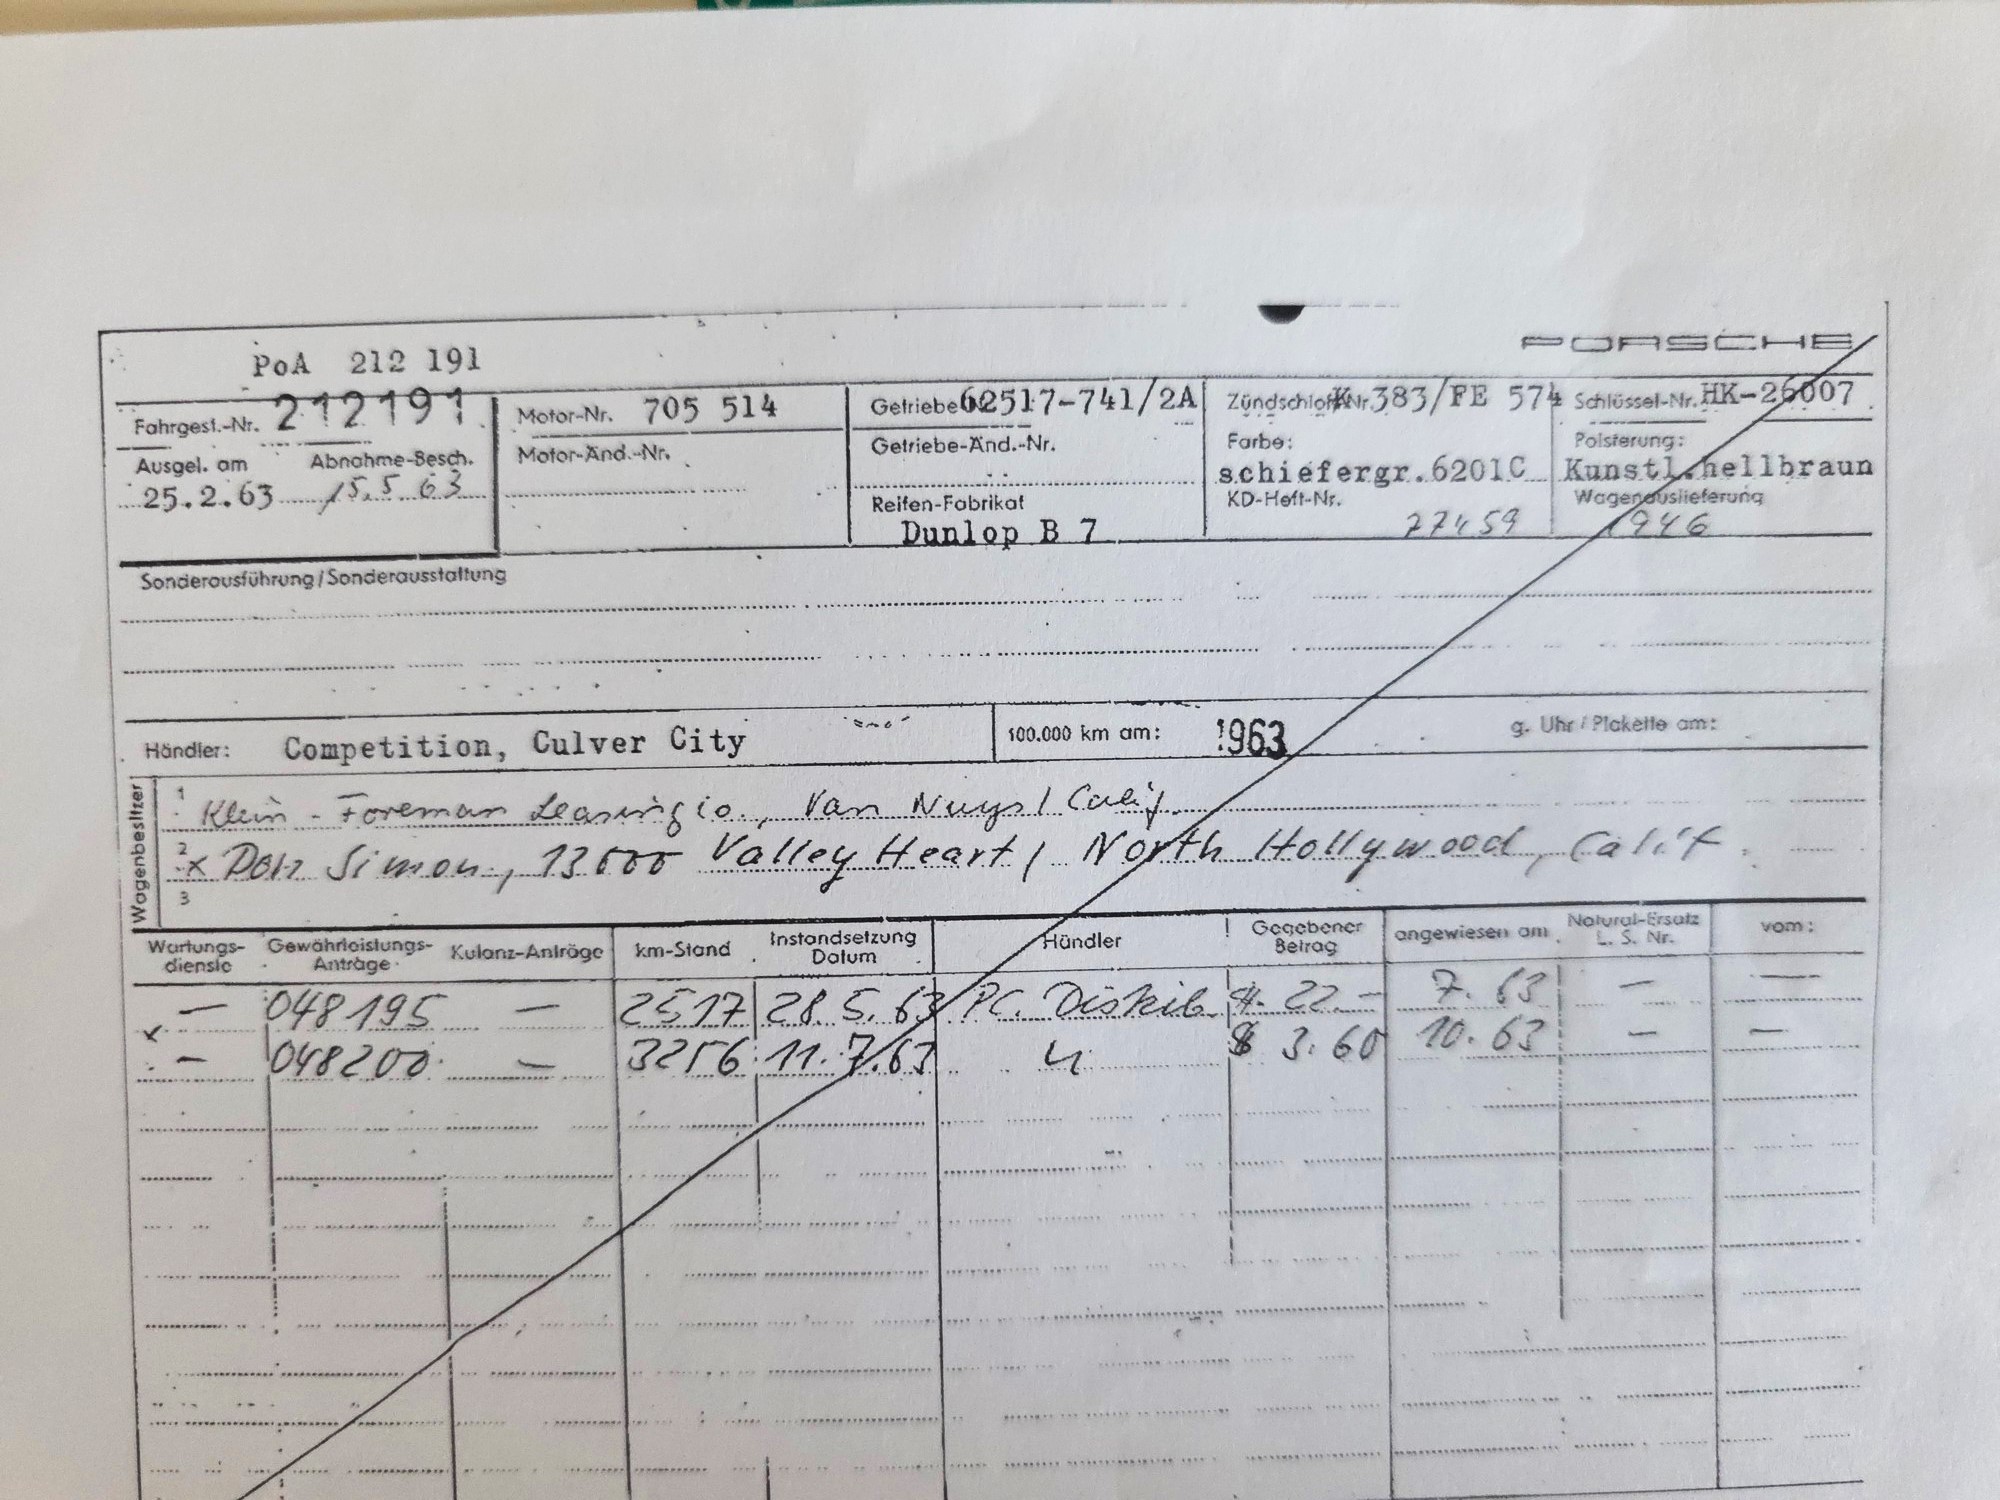 PORSCHE
PoA 212 191
Fahrgest.-Nr. 212191
Motor-Nr. 705 514
Getriebe 62517-741/2A
Zündschloß-Nr. K 383/FE 574
Schlüssel-Nr. HK-26007
Ausgel. am Abnahme-Besch.
25.2.63 15.5 63
Motor-Änd.-Nr.
Getriebe-Änd.-Nr.
Farbe:
schiefergr.6201C
Polsterung:
Kunstl.hellbraun
Reifen-Fabrikat
Dunlop B 7
KD-Heft-Nr.
27459
Wagenauslieferung
1946
Sonderausführung/Sonderausstattung
Händler: Competition, Culver City
100.000 km am: 1963
g. Uhr / Plakette am:
Wagenbesitzer
1 Klein - Foreman Leasing Co., Van Nuys / Calif.
2 x Don Simon, 13600 Valley Heart, North Hollywood, Calif.
3
Wartungs-dienste Gewährleistungs-Anträge Kulanz-Anträge km-Stand Instandsetzung Datum Händler Gegebener Betrag angewiesen am Natural-Ersatz L. S. Nr. vom:
— 048195 — 2517 28.5.63 PC. Distrib. $ 22.- 7.63 — —
x — 048200 — 3256 11.7.63 " $ 3.60 10.63 — —